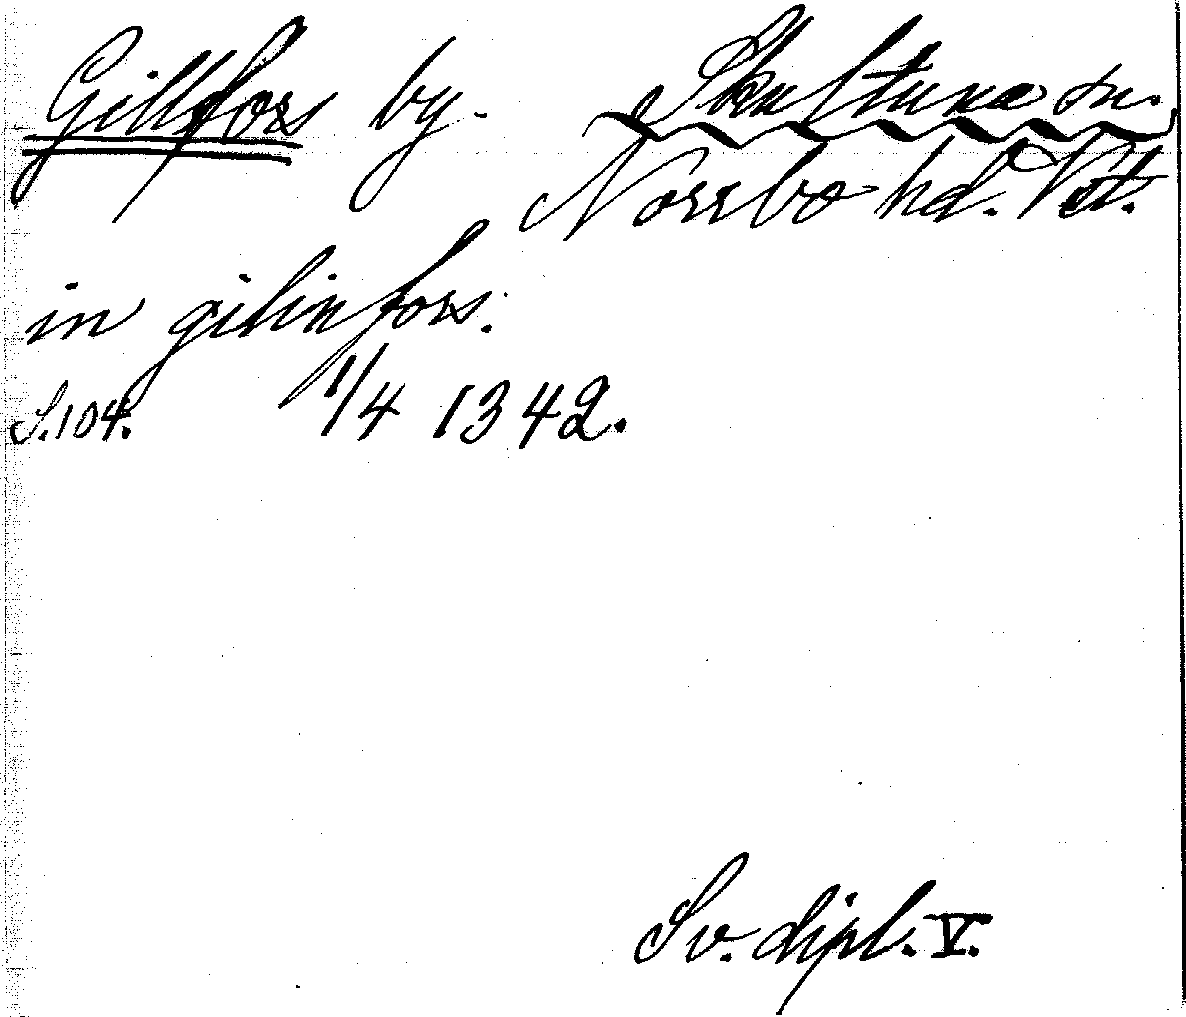 Gillfors by. Skultuna sn.
Norrbo hd. Vst.
in gilinfors.
S. 104. 1/4 1342.
Sv. dipl. V.